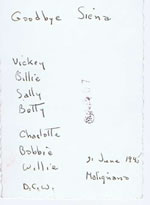 Goodbye Siena
Vickey
Billie
Sally
Betty
Charlotte
Bobbie
Willie
21 June
D.C.W.
Malignano